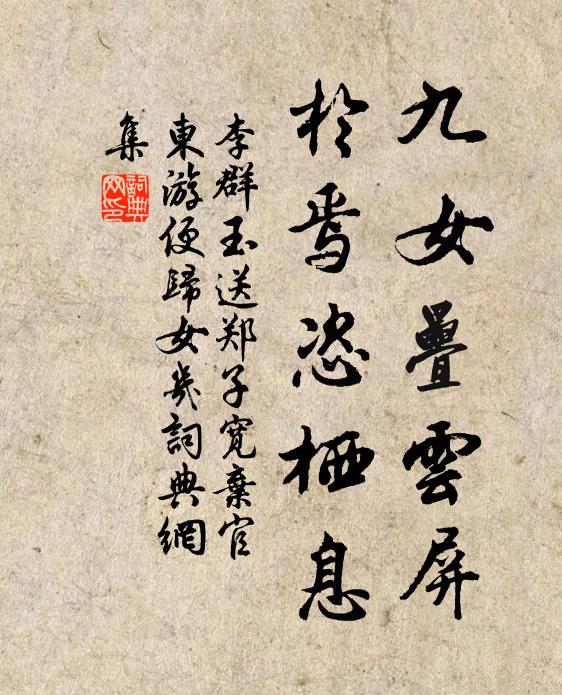 九女疊雲屏
於焉恣栖息
李群玉送郑子宽棄官
東游便歸女几詞典網
集
詞典
网印